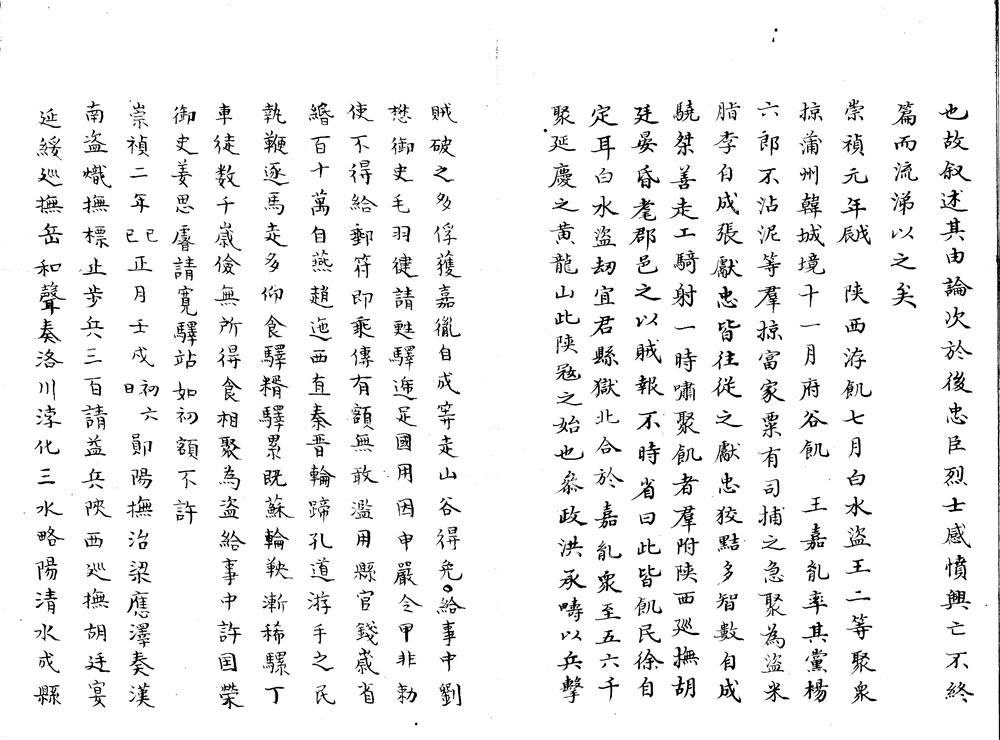 也故叙述其由論次於後忠臣烈士感憤興亡不終
篇而流涕以之矣
崇禎元年戊辰 陝西洊飢七月白水盜王二等聚衆
掠蒲州韓城境十一月府谷飢 王嘉胤率其黨楊
六郎不沾泥等羣掠富家粟有司捕之急聚為盜米
脂李自成張獻忠皆往從之獻忠狡黠多智數自成
驍桀善走工騎射一時嘯聚飢者羣附陝西廵撫胡
廷晏昏耄郡邑之以賊報不時省曰此皆飢民徐自
定耳白水盜劫宜君縣獄北合於嘉胤衆至五六千
聚延慶之黄龍山此陝冦之始也叅政洪承疇以兵擊
賊破之多俘獲嘉胤自成等走山谷得免。給事中劉
懋御史毛羽健請甦驛遞足國用因申嚴令甲非勅
使不得給郵符即乘傳有額無敢濫用縣官錢嵗省
緡百十萬自燕趙迤西直秦晋輪蹄孔道游手之民
執鞭逐馬走多仰食驛糈驛累既蘇輪鞅漸稀騾丁
車徒数千嵗儉無所得食相聚為盜給事中許国榮
御史姜思睿請寛驛站如初額不許
崇禎二年己巳正月壬戌初六日鄖陽撫治梁應澤奏漢
南盜熾撫標止步兵三百請益兵陝西廵撫胡廷宴
延綏廵撫岳和聲奏洛川淳化三水略陽清水成縣